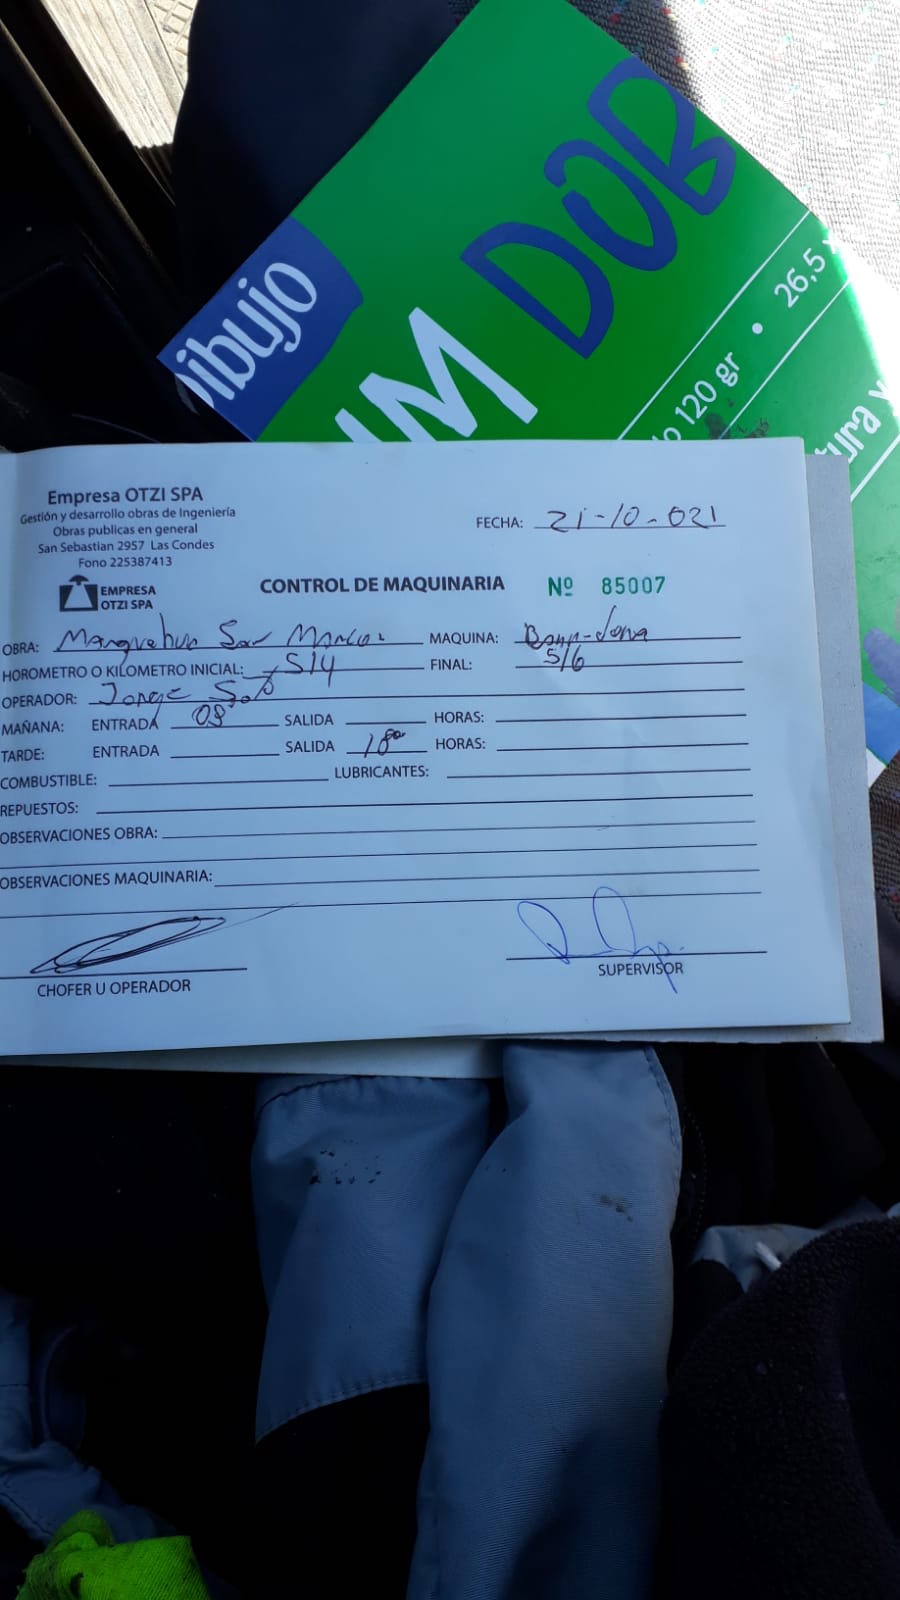 Dibujo
UM DOB
120 gr • 26,5
tura y
Empresa OTZI SPA
Gestión y desarrollo obras de Ingeniería
Obras publicas en general
San Sebastian 2957 Las Condes
Fono 225387413
EMPRESA
OTZI SPA
FECHA: 21-10-021
CONTROL DE MAQUINARIA Nº 85007
OBRA: Manquehue San Marcos MAQUINA:
HOROMETRO O KILOMETRO INICIAL: 514 FINAL: 516
OPERADOR: Jorge Soto
MAÑANA: ENTRADA 08 SALIDA HORAS:
TARDE: ENTRADA SALIDA 18 HORAS:
COMBUSTIBLE: LUBRICANTES:
REPUESTOS:
OBSERVACIONES OBRA:
OBSERVACIONES MAQUINARIA:
CHOFER U OPERADOR SUPERVISOR